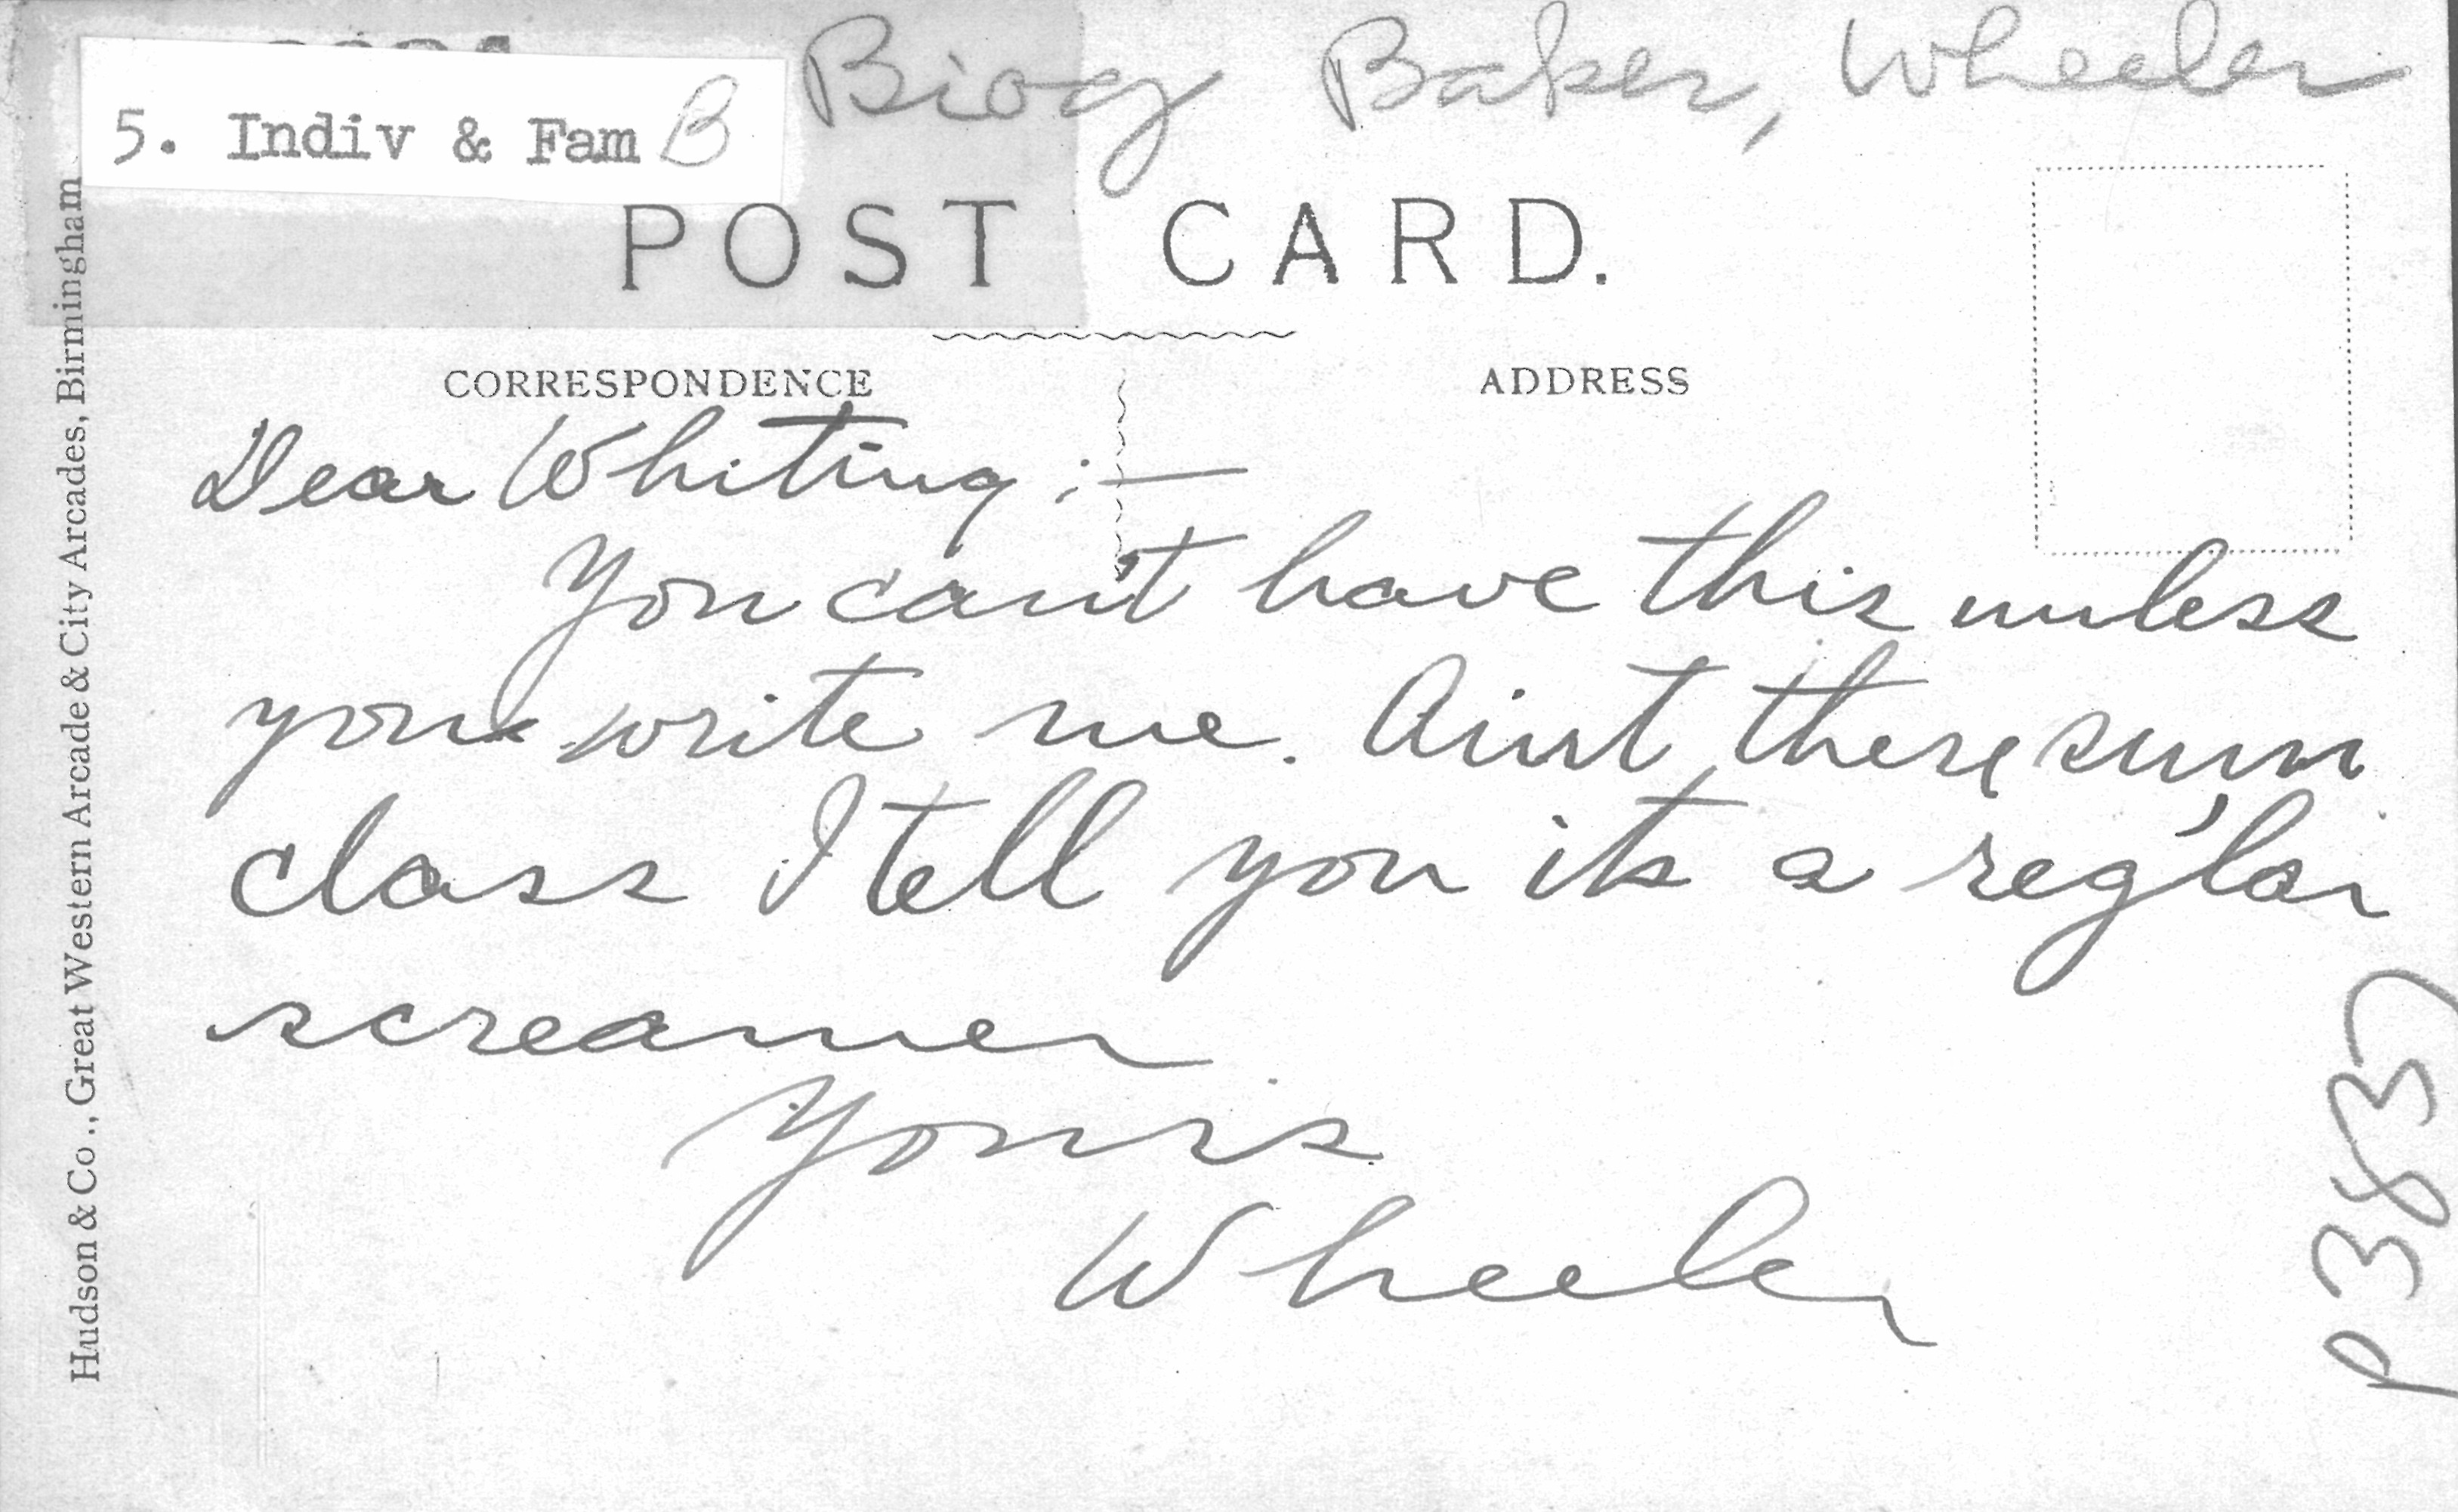 Biog Baker, Wheeler
5. Indiv & Fam B
POST CARD.
CORRESPONDENCE
ADDRESS
Dear Whiting :—
You can't have this unless
you write me. Aint there sum
class I tell you its a reg'lar
screamer
Yours
Wheeler
Hudson & Co., Great Western Arcade & City Arcades, Birmingham